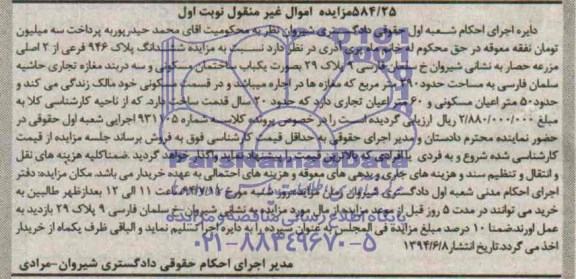 ۵۸۴/۲۵مزایده اموال غیر منقول نوبت اول
دایره اجرای احکام شعبه اول حقوقی دادگستری شیروان نظر به محکومیت اقای محمد حیدرپور به پرداخت سه میلیون
تومان نفقه معوقه در حق محکوم له خانم ماه پری آذری در نظر دارد نسبت به مزایده ششدانگ پلاک ۹۴۶ فرعی از ۲ اصلی
مزرعه حصار به نشانی شیروان خ سلمان فارسی ۹ پلاک ۲۹ بصورت یکباب ساختمان مسکونی و سه دربند مغازه تجاری حاشیه
سلمان فارسی به مساحت حدود ۹۰ متر مربع که مغازه ها در اجاره میباشد و در قسمت مسکونی خود مالک زندگی می کند و
حدود ۵۰ متر اعیان مسکونی و ۶۰ متر اعیان تجاری دارد که حدود ۲۰ سال قدمت ساخت دارد. که از ناحیه کارشناسی کلا به
مبلغ ۲/۸۸۰/۰۰۰/۰۰۰ ریال ارزیابی گردیده است را در خصوص پرونده کلاسه شماره ۹۳۱۱۰۵ اجرایی شعبه اول حقوقی در
حضور نماینده محترم دادستان و مدیر اجرای حقوقی به حداقل قیمت کارشناسی فوق به فروش برساند جلسه مزایده از قیمت
کارشناسی شده شروع و به فردی یا افرادی که بالاترین قیمت را پیشنهاد نمایند واگذار خواهد گردید .ضمنا کلیه هزینه های نقل
و انتقال و تنظیم سند و هزینه های جاری و بدهی های معوقه و هزینه های احتمالی به عهده خریدار می باشد. مکان مزایده: دفتر
اجرای احکام مدنی شعبه اول دادگستری شیروان زمان مزایده: روز شنبه مورخ ساعت ۱۱ الی ۱۲ بعدازظهر طالبین به
خرید می توانند در مدت ۵ روز قبل از موعد مزایده از مال مورد مزایده به نشانی شیروان خ سلمان فارسی ۹ پلاک ۲۹ بازدید به
عمل اورند.ضمنا ۱۰ درصد مبلغ مزایده فی المجلس به عنوان سپرده را به دایره اجرا تسلیم نماید و الباقی ظرف یکماه از خریدار
اخذ می گردد.تاریخ انتشار ۱۳۹۴/۶/۸
مدیر اجرای احکام حقوقی دادگستری شیروان-مرادی
ParsNamadData
پایگاه اطلاع رسانی مناقصه و مزایده
۰۲۱-۸۸۳۴۹۶۷۰-۵